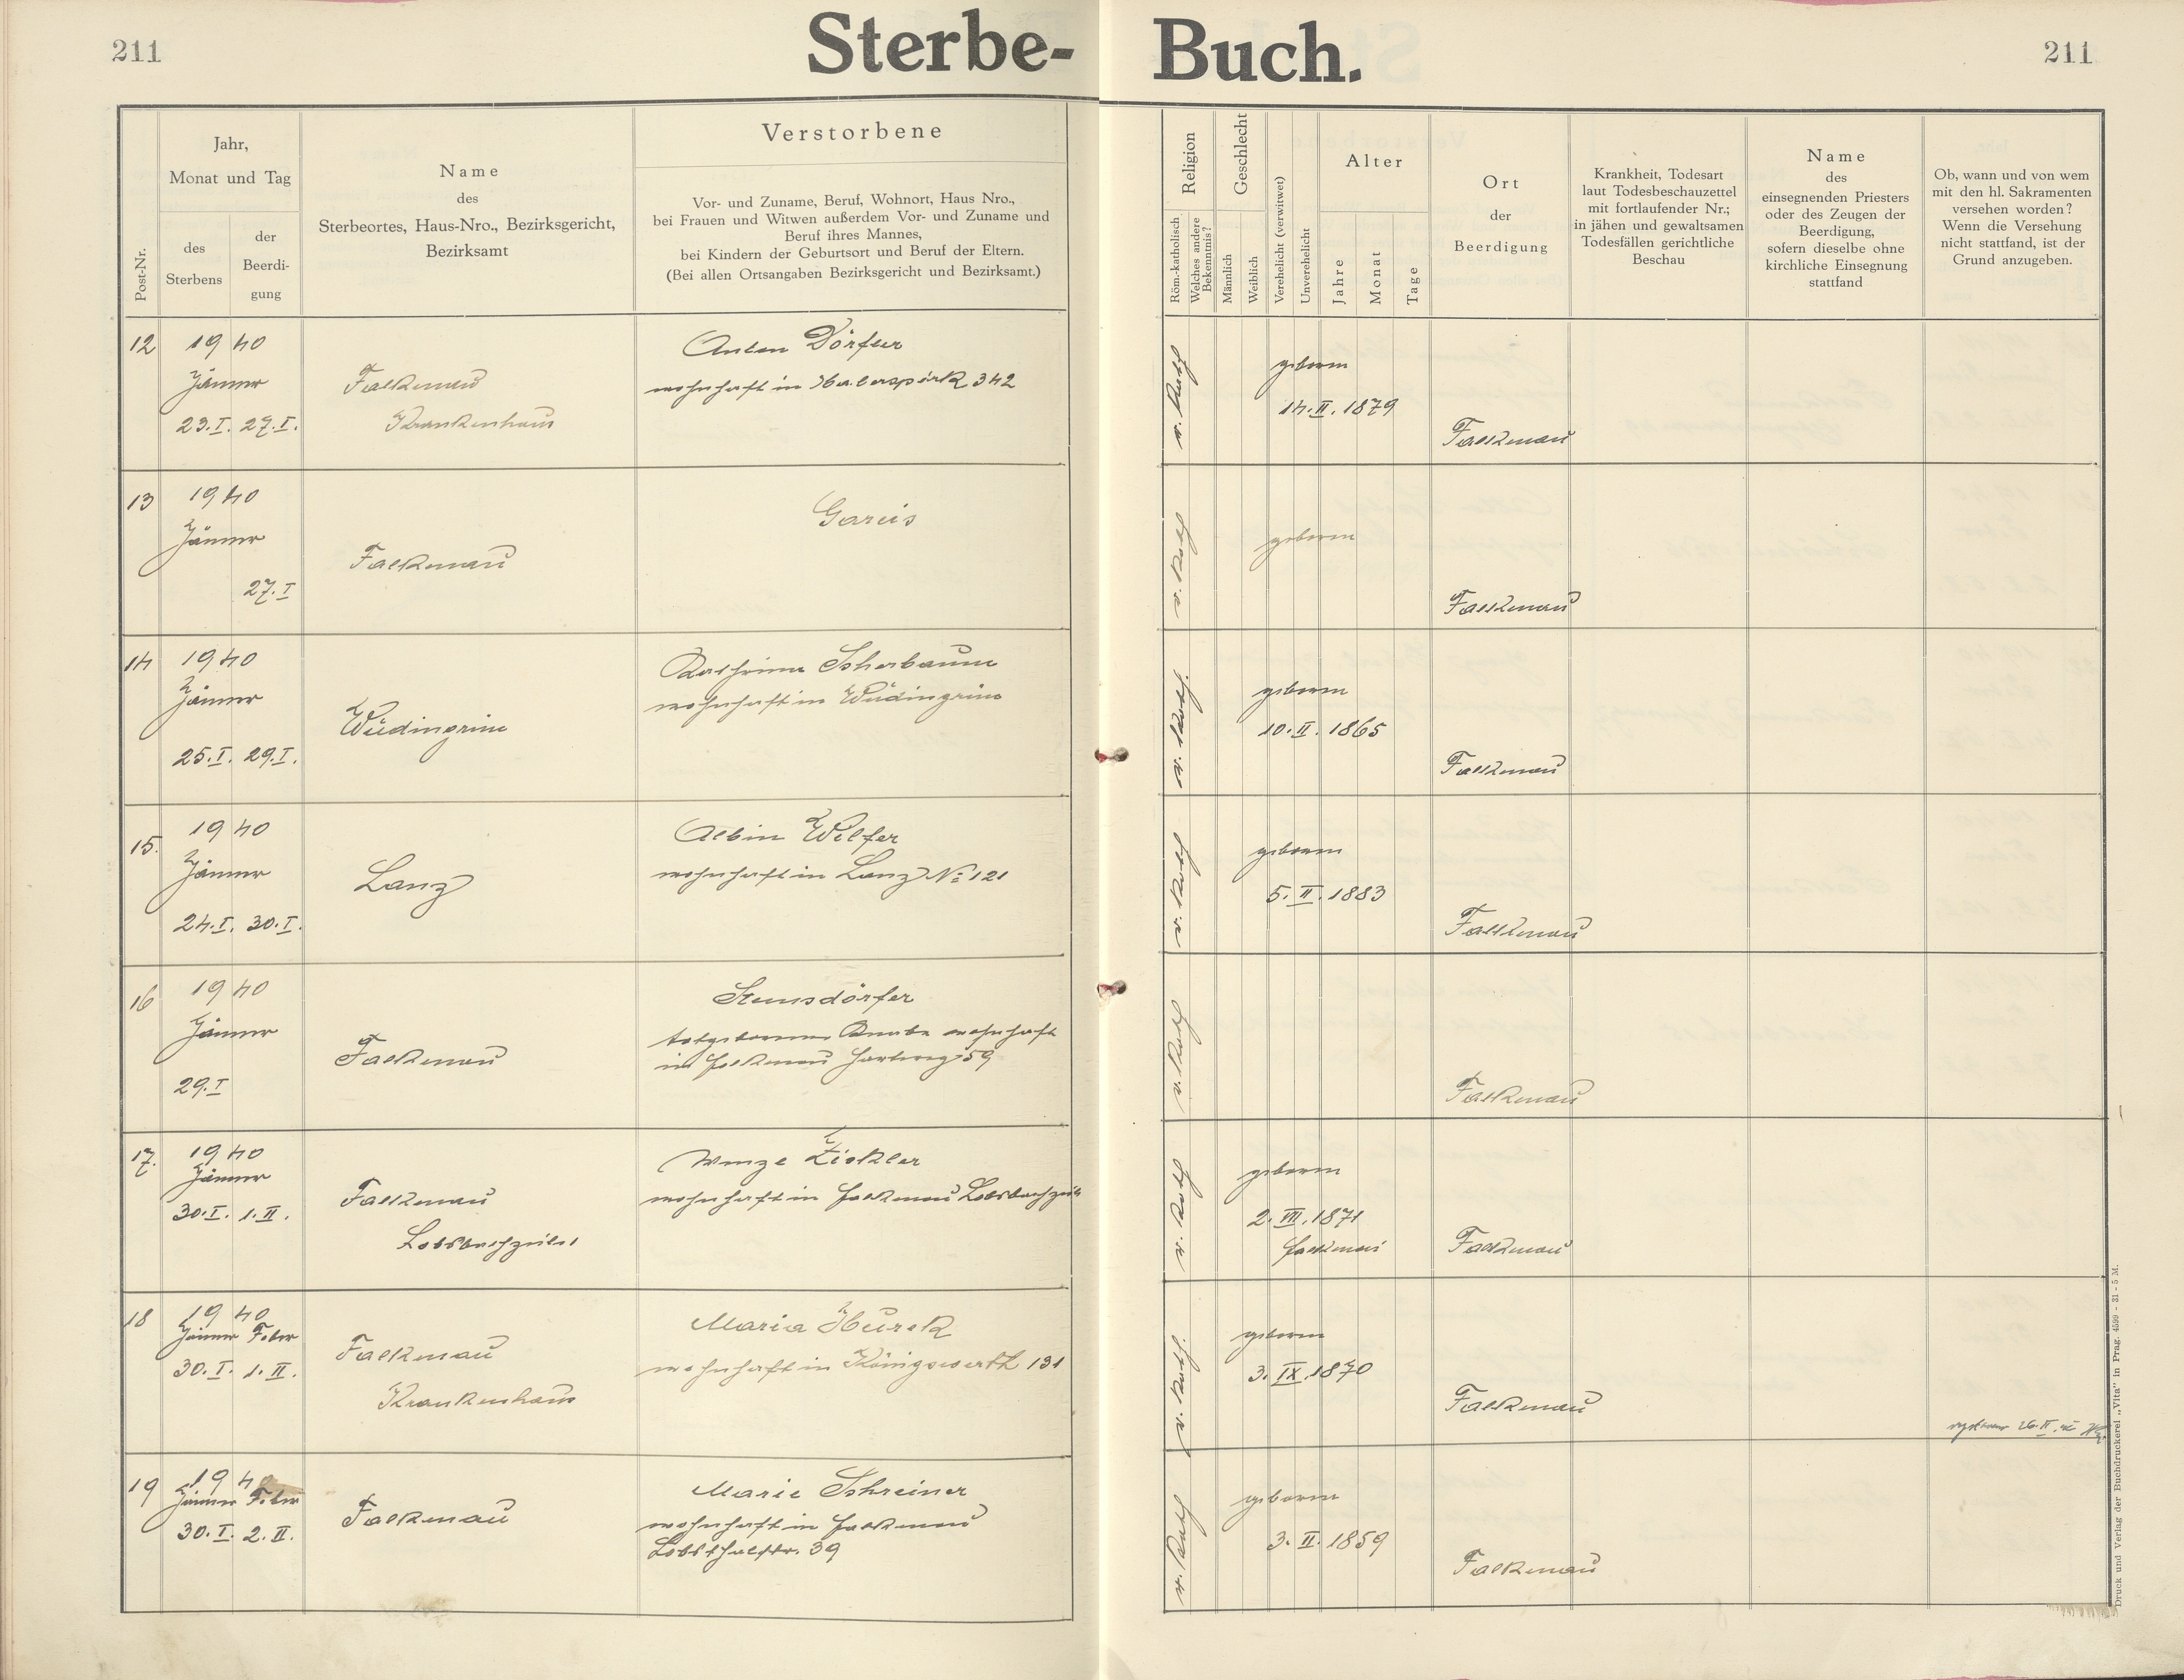 211
Sterbe-
Buch.
211
Post-Nr.
Jahr,
Monat und Tag
des
Sterbens
der
Beerdi-
gung
Name
des
Sterbeortes, Haus-Nro., Bezirksgericht,
Bezirksamt
Verstorbene
Vor- und Zuname, Beruf, Wohnort, Haus Nro.,
bei Frauen und Witwen außerdem Vor- und Zuname und
Beruf ihres Mannes,
bei Kindern der Geburtsort und Beruf der Eltern.
(Bei allen Ortsangaben Bezirksgericht und Bezirksamt.)
Religion
Röm.-katholisch
Welches andere
Bekenntnis?
Geschlecht
Männlich
Weiblich
Verehelicht (verwitwet)
Unverehelicht
Alter
Jahre
Monat
Tage
Ort
der
Beerdigung
Krankheit, Todesart
laut Todesbeschauzettel
mit fortlaufender Nr.;
in jähen und gewaltsamen
Todesfällen gerichtliche
Beschau
Name
des
einsegnenden Priesters
oder des Zeugen der
Beerdigung,
sofern dieselbe ohne
kirchliche Einsegnung
stattfand
Ob, wann und von wem
mit den hl. Sakramenten
versehen worden?
Wenn die Versehung
nicht stattfand, ist der
Grund anzugeben.
12
1940
Jänner
23.I. 27.I.
Falkenau
Krankenhaus
Anton Dörfler
wohnhaft in Haberspirk 342
r. kath
geboren
14.II.1879
Falkenau
13
1940
Jänner
27.I
Falkenau
Gareis
r. kath
geboren
Falkenau
14
1940
Jänner
25.I. 29.I.
Wüdingrün
Kathrina Scherbaum
wohnhaft in Wüdingrün
r. kath.
geboren
10.II.1865
Falkenau
15.
1940
Jänner
24.I. 30.I.
Lanz
Albin Wilfer
wohnhaft in Lanz No 121
r. kath
geboren
5.II.1883
Falkenau
16
1940
Jänner
29.I
Falkenau
totgeborener Knabe wohnhaft
in Falkenau 59
r. kath
Falkenau
17.
1940
Jänner
30.I. 1.II.
Falkenau
Lobsbachzeile 1
Wenzl Zickler
wohnhaft in Falkenau Lobsbachzeile
r. kath
geboren
2.VII.1871
Falkenau
Falkenau
18
1940
Jänner Feber
30.I. 1.II.
Falkenau
Krankenhaus
Maria Hurek
wohnhaft in Königswerth 131
r. kath.
geboren
3.IX.1870
Falkenau
26.II.
19
1940
Jänner Feber
30.I. 2.II.
Falkenau
Marie Schreiner
wohnhaft in Falkenau
Lobsthalstr. 39
r. kath
geboren
3.II.1859
Falkenau
Druck und Verlag der Buchdruckerei „Vita" in Prag. 4599 - 31 - 5 M.